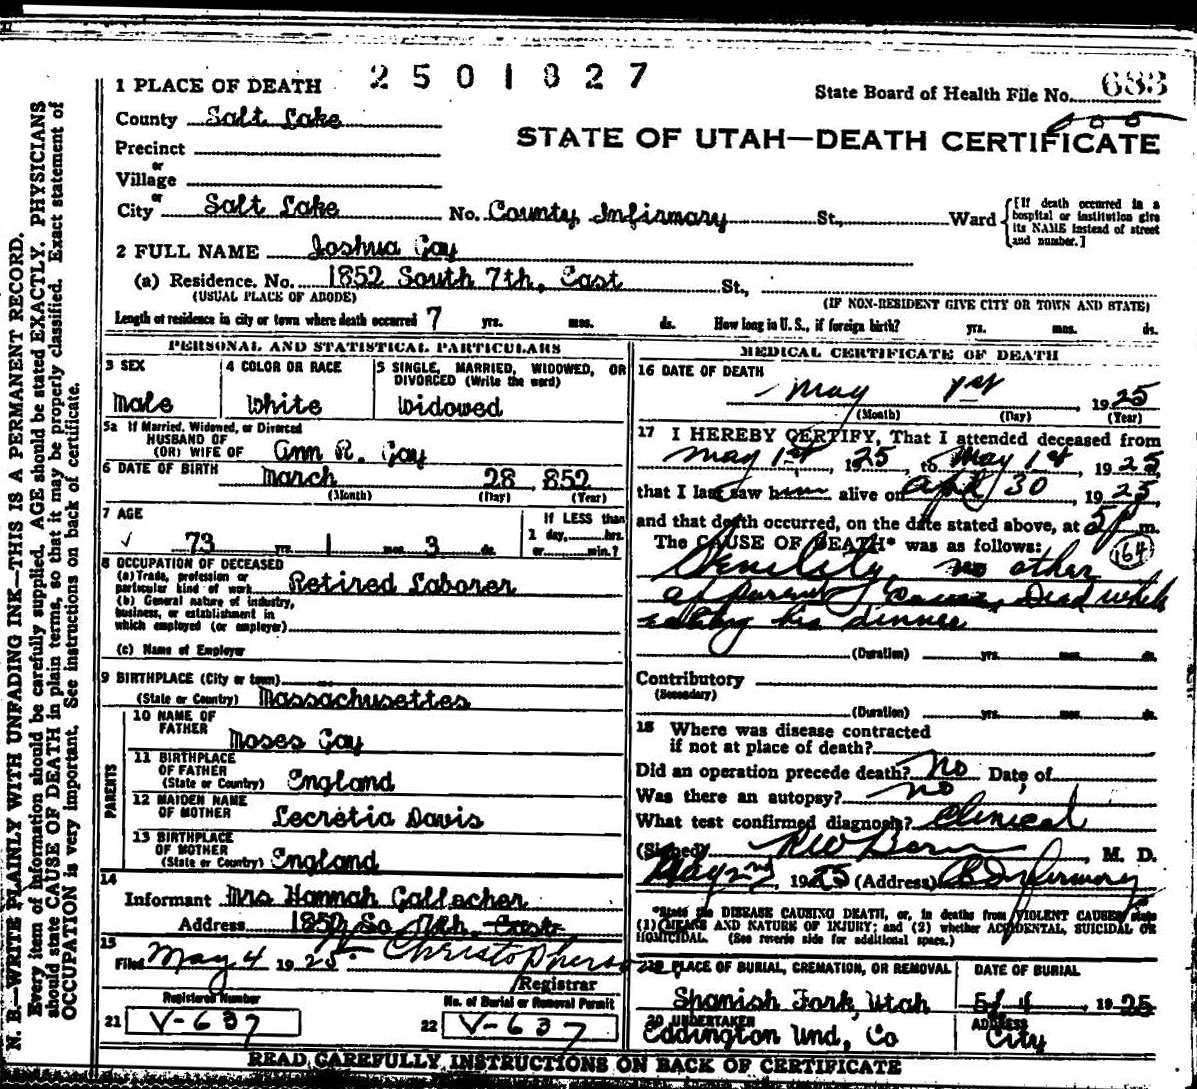 1 PLACE OF DEATH 2501827
State Board of Health File No. 683
County Salt Lake
STATE OF UTAH—DEATH CERTIFICATE
Precinct
or
Village
or
City Salt Lake No. County Infirmary St., Ward
[If death occurred in a hospital or institution give its NAME instead of street and number.]
2 FULL NAME Joshua Gay
(a) Residence. No. 1852 South 7th, East St.,
(USUAL PLACE OF ABODE) (IF NON-RESIDENT GIVE CITY OR TOWN AND STATE)
Length of residence in city or town where death occurred 7 yrs. mos. ds. How long in U. S., if foreign birth? yrs. mos. ds.
PERSONAL AND STATISTICAL PARTICULARS
3 SEX
Male
4 COLOR OR RACE
White
5 SINGLE, MARRIED, WIDOWED, OR
DIVORCED (Write the word)
Widowed
5a If Married, Widowed, or Divorced
HUSBAND OF
(OR) WIFE OF Ann R. Gay
6 DATE OF BIRTH March 28, 852
(Month) (Day) (Year)
7 AGE
73 yrs. 1 mos. 3 ds.
If LESS than
1 day, hrs.
or min.?
8 OCCUPATION OF DECEASED
(a) Trade, profession or
particular kind of work Retired Laborer
(b) General nature of industry,
business, or establishment in
which employed (or employer)
(c) Name of Employer
9 BIRTHPLACE (City or town)
(State or Country) Massachusettes
PARENTS
10 NAME OF
FATHER Moses Gay
11 BIRTHPLACE
OF FATHER
(State or Country) England
12 MAIDEN NAME
OF MOTHER Lecretia Davis
13 BIRTHPLACE
OF MOTHER
(State or Country) England
14
Informant Mrs Hannah Gallacher
Address 1852 So 7th. East
15
Filed May 4 1925
Registrar
Registered Number
21 V-637
No. of Burial or Removal Permit
22 V-637
MEDICAL CERTIFICATE OF DEATH
16 DATE OF DEATH
May 1st, 1925
(Month) (Day) (Year)
17 I HEREBY CERTIFY, That I attended deceased from
May 1st, 1925, to May 1st, 1925
that I last saw him alive on April 30, 1925
and that death occurred, on the date stated above, at 5 P m.
The CAUSE OF DEATH* was as follows: 164
Senility, no other
apparent cause, Dead while
eating his dinner
(Duration) yrs. mos. ds.
Contributory
(Secondary)
(Duration) yrs. mos. ds.
18 Where was disease contracted
if not at place of death?
Did an operation precede death? No Date of
Was there an autopsy? no
What test confirmed diagnosis? Clinical
(Signed) , M. D.
May 2nd, 1925 (Address) Infirmary
*State the DISEASE CAUSING DEATH, or, in deaths from VIOLENT CAUSES state
(1) MEANS AND NATURE OF INJURY; and (2) whether ACCIDENTAL, SUICIDAL OR
HOMICIDAL. (See reverse side for additional space.)
PLACE OF BURIAL, CREMATION, OR REMOVAL
Spanish Fork, Utah
DATE OF BURIAL
5/4, 1925
20 UNDERTAKER
Eddington Und, Co
ADDRESS
City
READ CAREFULLY INSTRUCTIONS ON BACK OF CERTIFICATE
N. B.—WRITE PLAINLY WITH UNFADING INK—THIS IS A PERMANENT RECORD.
Every item of information should be carefully supplied. AGE should be stated EXACTLY. PHYSICIANS
should state CAUSE OF DEATH in plain terms, so that it may be properly classified. Exact statement of
OCCUPATION is very important. See instructions on back of certificate.